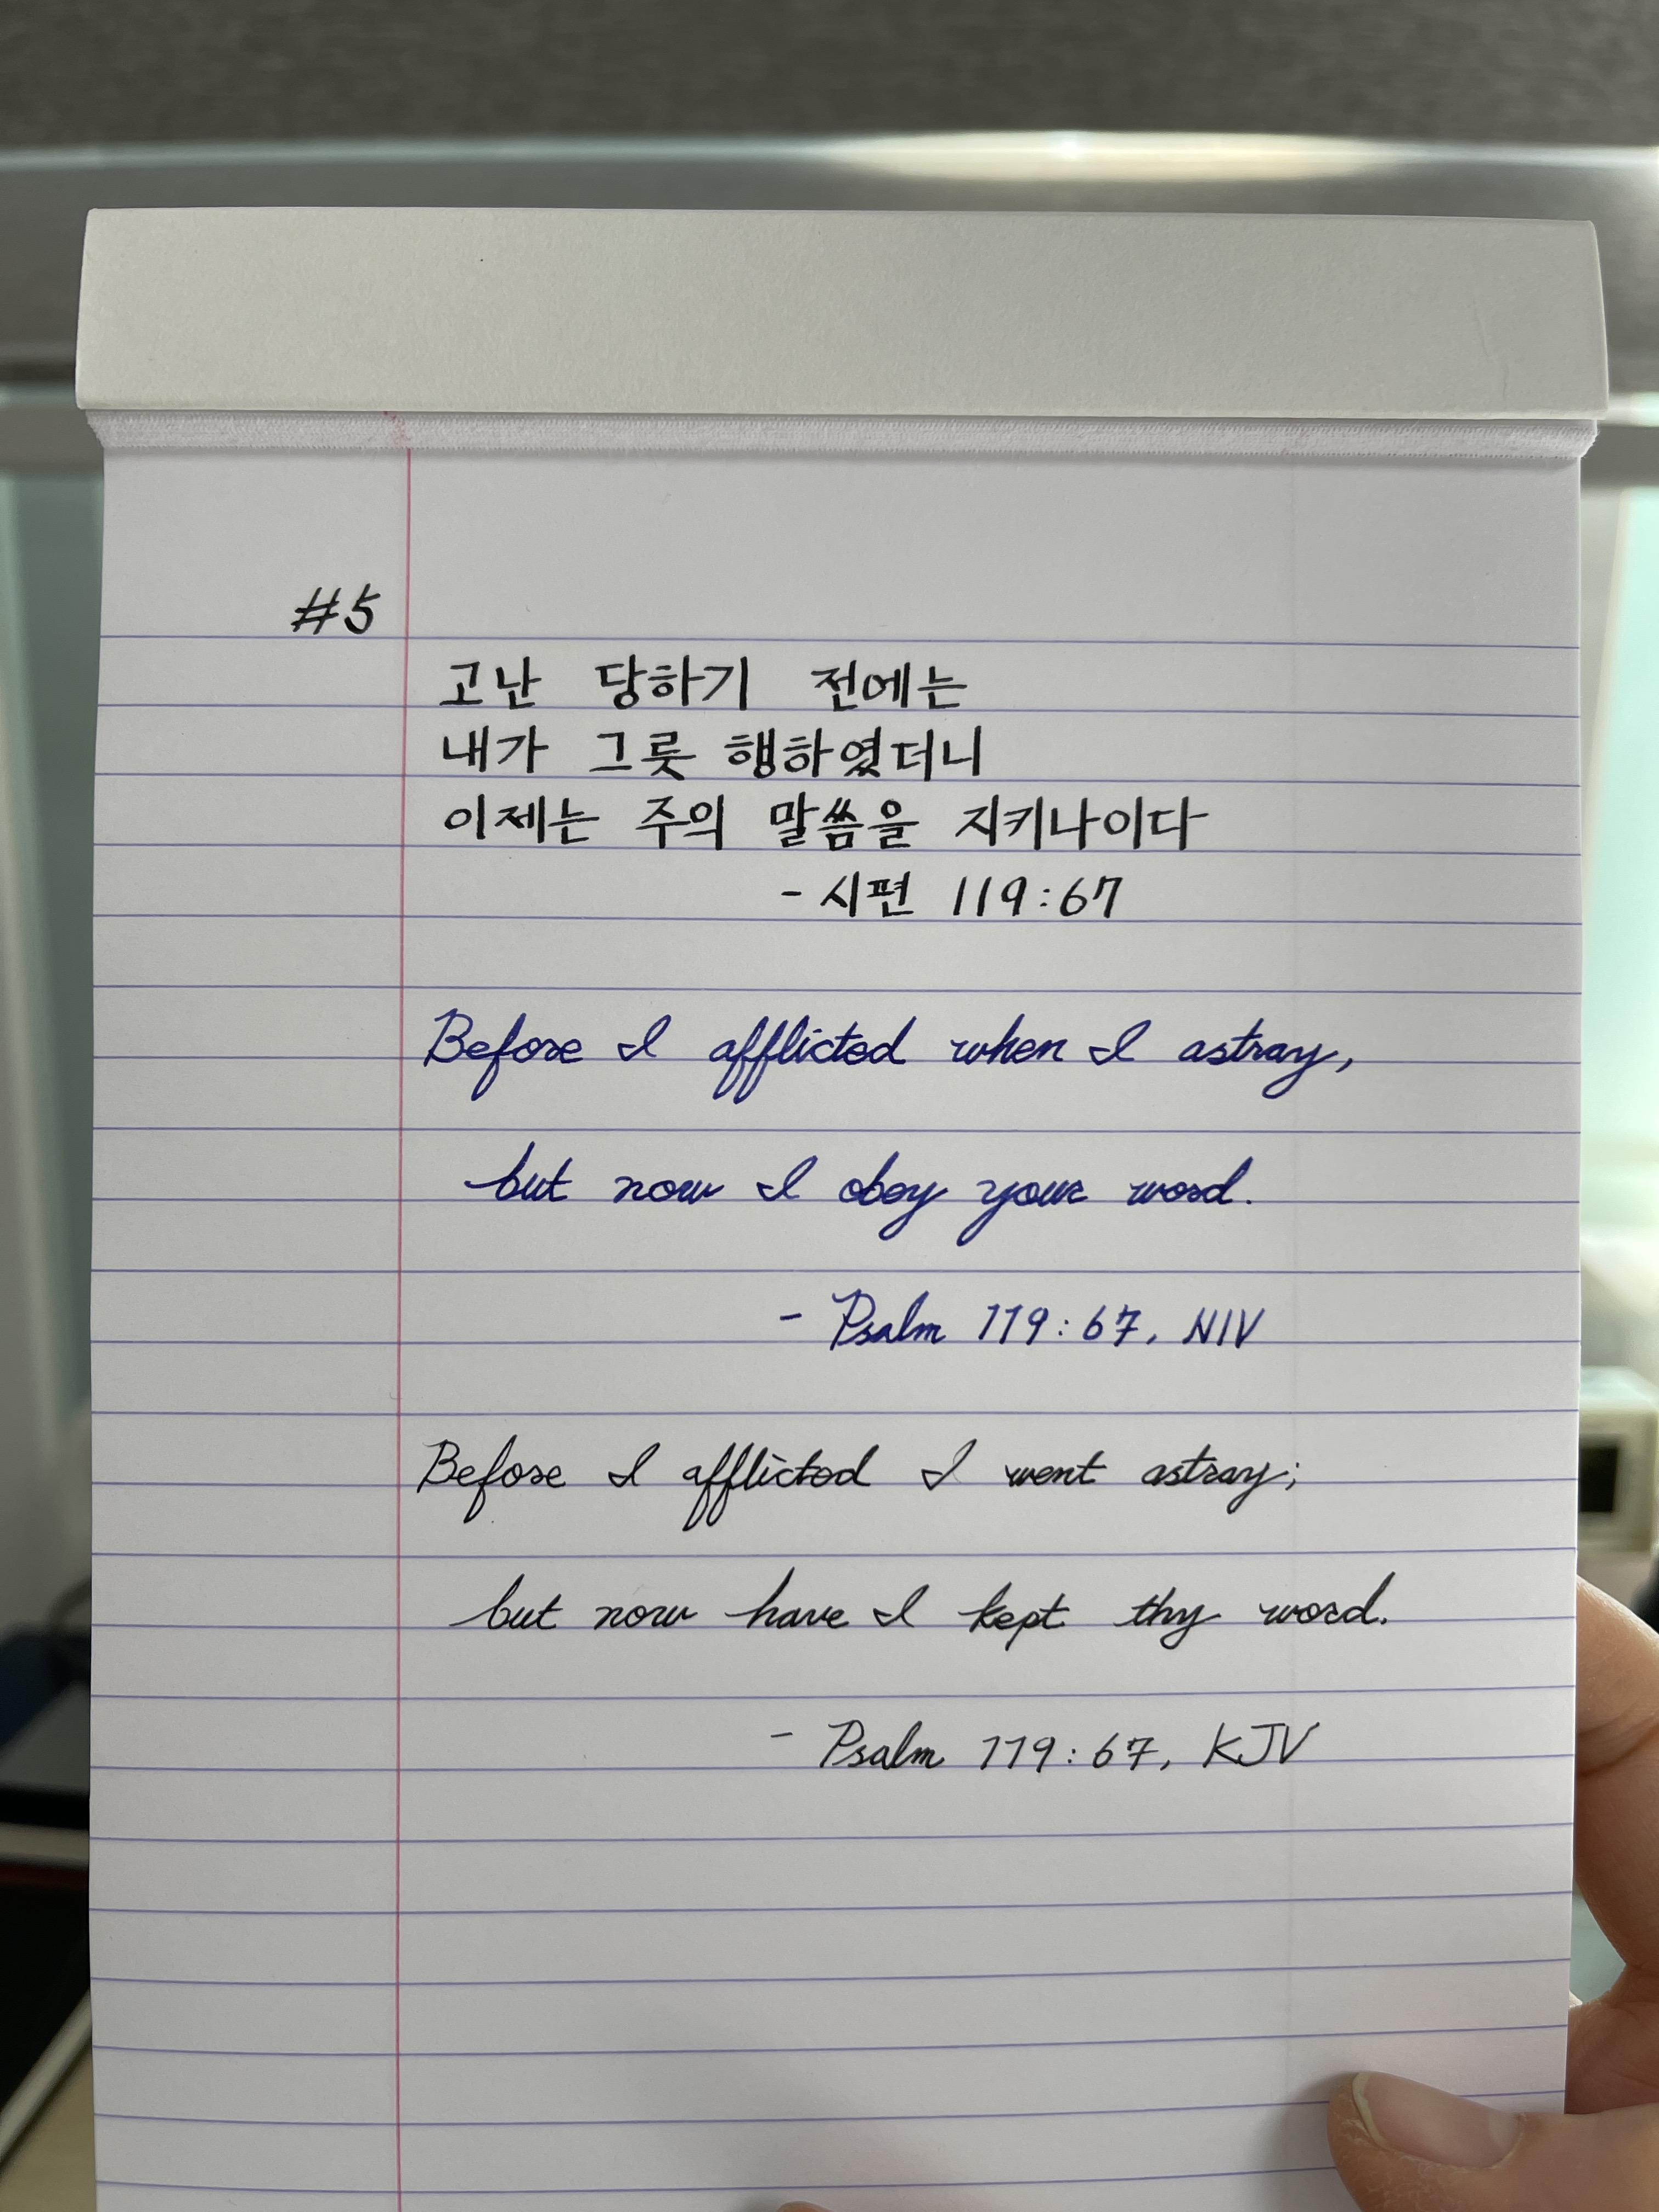 #5
고난 당하기 전에는
내가 그릇 행하였더니
이제는 주의 말씀을 지키나이다
- 시편 119:67
Before I afflicted when I astray,
but now I obey your word.
- Psalm 119:67, NIV
Before I afflicted I went astray;
but now have I kept thy word.
- Psalm 119:67, KJV